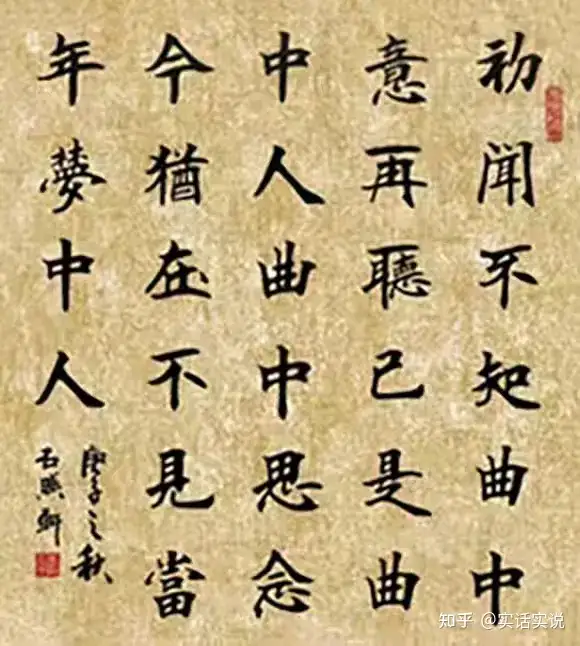 初聞不知曲中
意再聽已是曲
中人曲中思念
今猶在不見當
年夢中人
庚子之秋
知乎 @实话实说